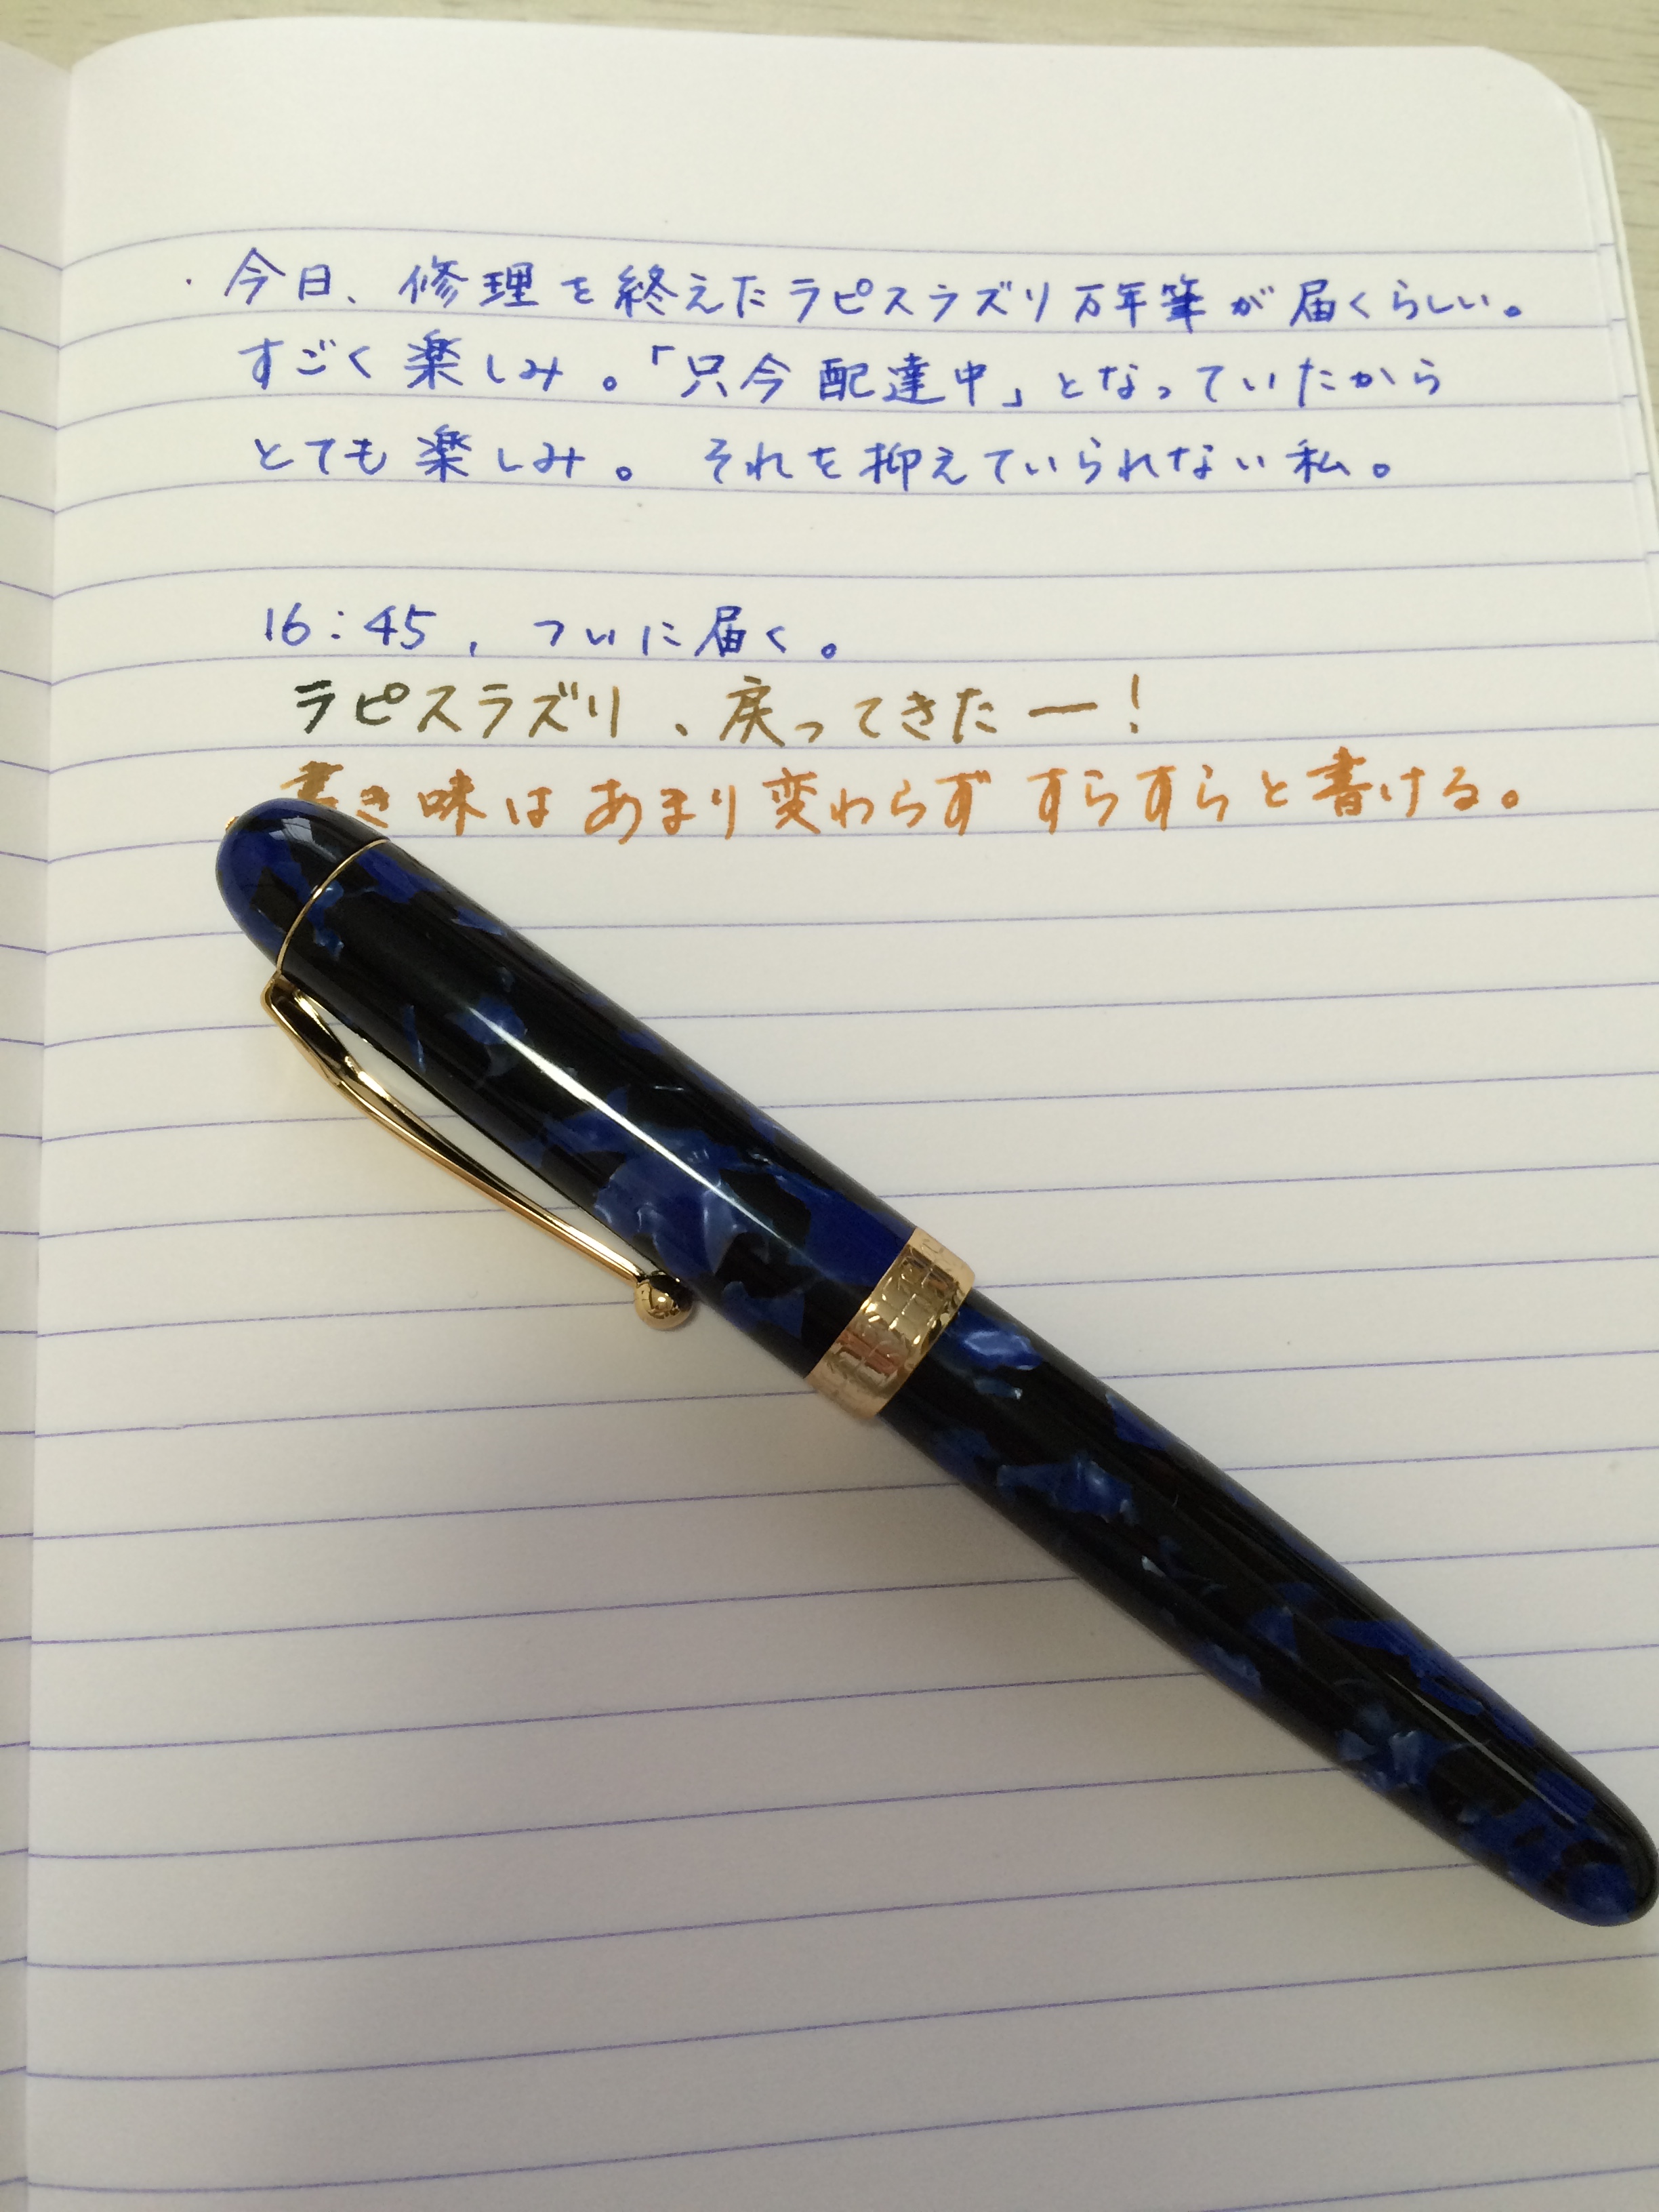 ・今日、修理を終えたラピスラズリ万年筆が届くらしい。
すごく楽しみ。「只今配達中」となっていたから
とても楽しみ。それを抑えていられない私。
16:45、ついに届く。
ラピスラズリ、戻ってきたー!
書き味はあまり変わらずすらすらと書ける。